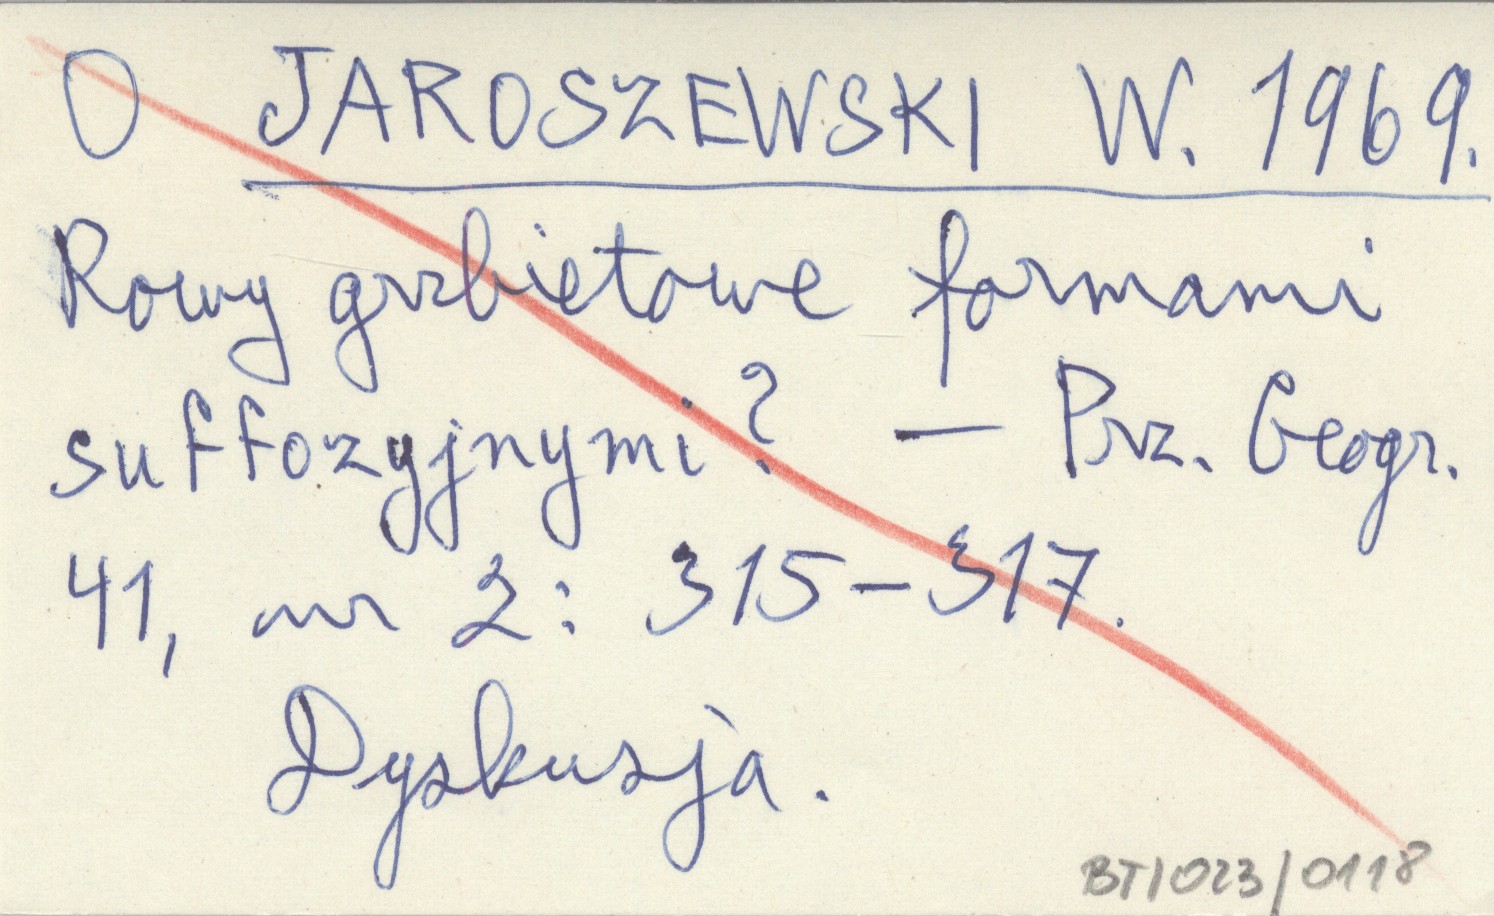 O JAROSZEWSKI W. 1969.
Rowy grzbietowe formami
suffozyjnymi? — Prz. Geogr.
41, nr 2: 315-317.
Dyskusja.
BT/023/0118